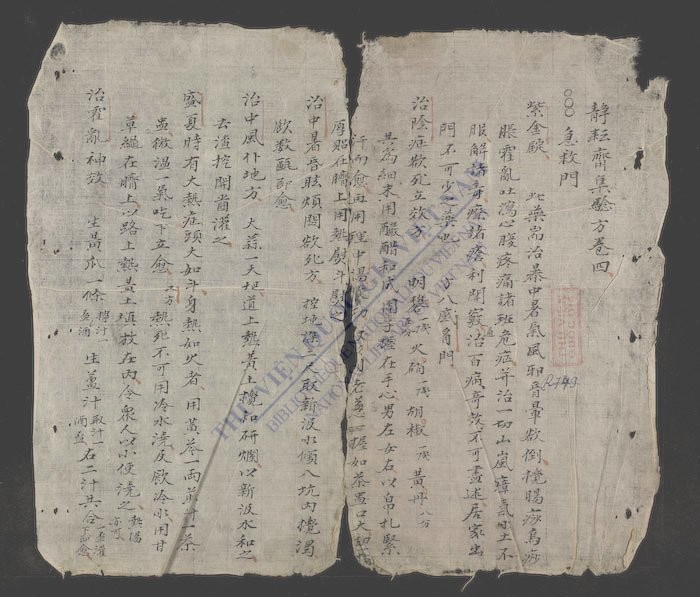 靜耘齋集驗方卷四
急救門
紫金錠 此藥耑治暴中暑氣風邪昏暈欲倒攪腸痧烏痧
脹霍亂吐瀉心腹疼痛諸班危症并治一切山嵐瘴氣水土不
服解諸毒療諸瘡利關竅治百病奇效不可盡述居家出
門不可少之藥也 八底角門
治陰症欲死立效方 明礬 火硝 胡椒 黃丹
共為細末用釅醋和成團子握在手心男左女右以帛札緊
汗而愈再用理中湯 老薑一握如茶盃口大
厚貼在臍上用熱熨斗熨之
治中暑昏眩煩悶欲死方 挖地 取新汲水傾入坑內攪濁
飲數甌即愈
治中風仆地方 大蒜一大把道上熱黃土攪和研爛以新汲水和之
去渣挖開齒灌之
盛夏時有大熱症頭大如斗身熱如火者 用黃芩一兩煎汁一茶
盅微溫一氣吃下立愈 又方 熱死不可用冷水澆及飲冷水用甘
草纏在臍上以路上熱黃土填放在內令眾人以小便澆之 熱湯亦可
治霍亂神效 生黃瓜一條 生薑汁 右二汁共合 灌下愈
THƯ VIỆN QUỐC GIA VIỆT NAM
R.743